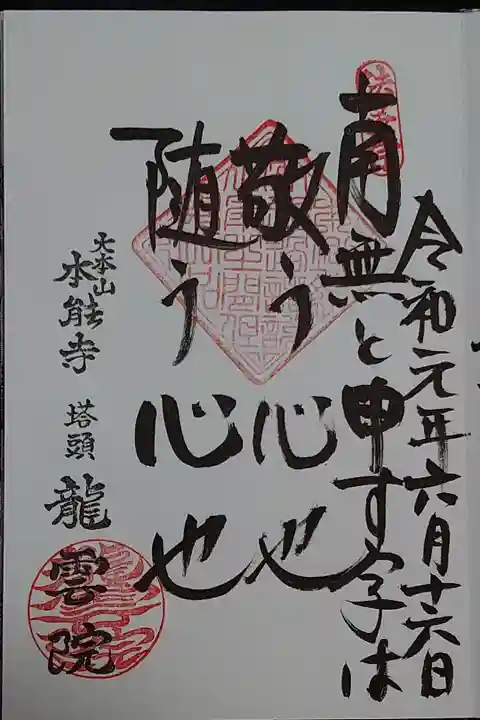 令和元年六月十六日
南無と申す字は
敬う心也
随う心也
大本山
本能寺
塔頭
龍雲院